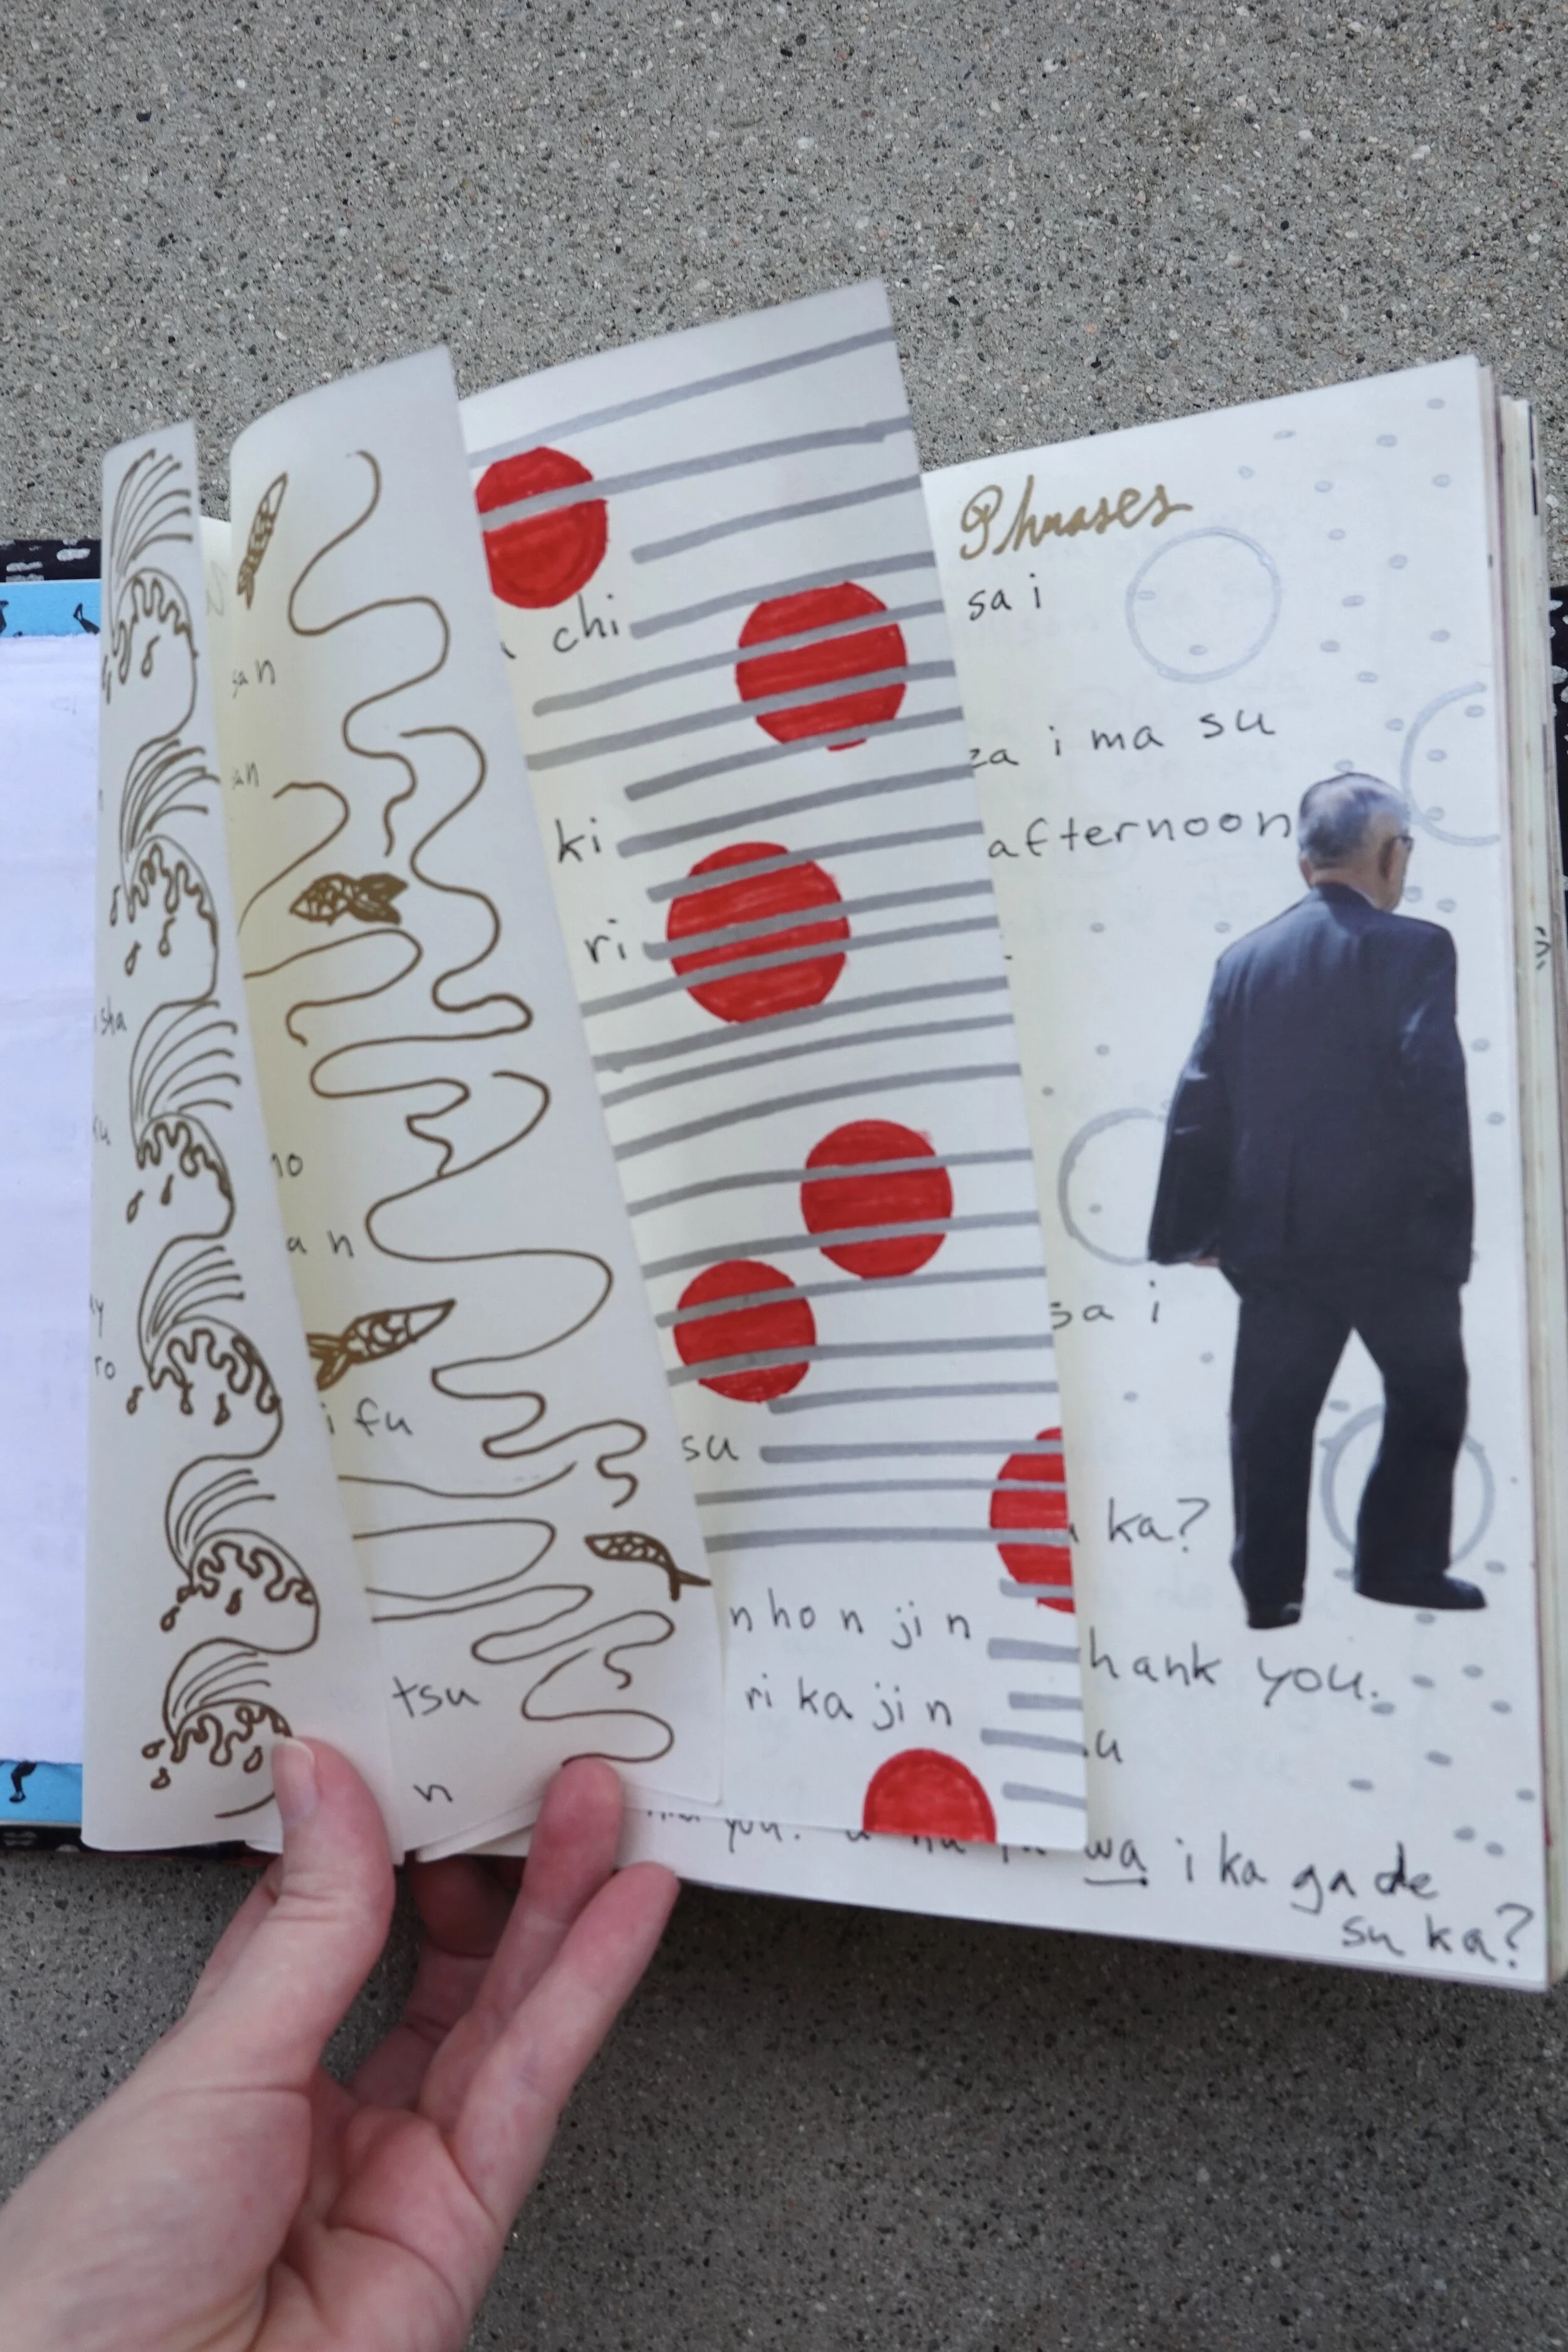 san
san
sha
ku
no
an
ro
i fu
tsu
n
chi
ki
ri
su
nhonjin
rikajin
Phrases
sai
za i ma su
afternoon
sa i
ka?
hank you.
u
you.
wa i ka ga de
su ka?